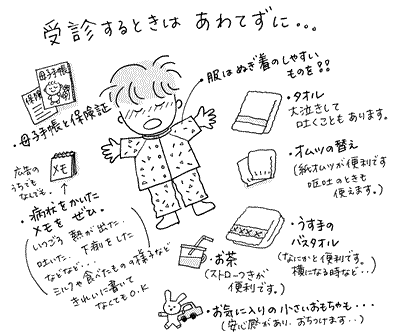 受診するときは あわてずに...
母子手帳
保険
・母子手帳と保険証
・服はぬぎ着のしやすい
ものを!!
・タオル
大泣きして
吐くこともあります。
広告の
うらでも
なんでも。
メモ
・オムツの替え
(紙オムツが便利です
嘔吐のときも
使えます。)
・病状をかいた
メモを ぜひ。
いつごろ 熱が出た..
吐いた.. 下痢をした
などなど...
ミルクや食べたものの様子など
きれいに書いて
なくてもO.K
・うす手の
バスタオル
(なにかと便利です。
横になる時など・・)
・お茶
(ストローつきが
便利です。)
・お気に入りの小さいおもちゃも・・・
(安心感があり、おちつきます・・)